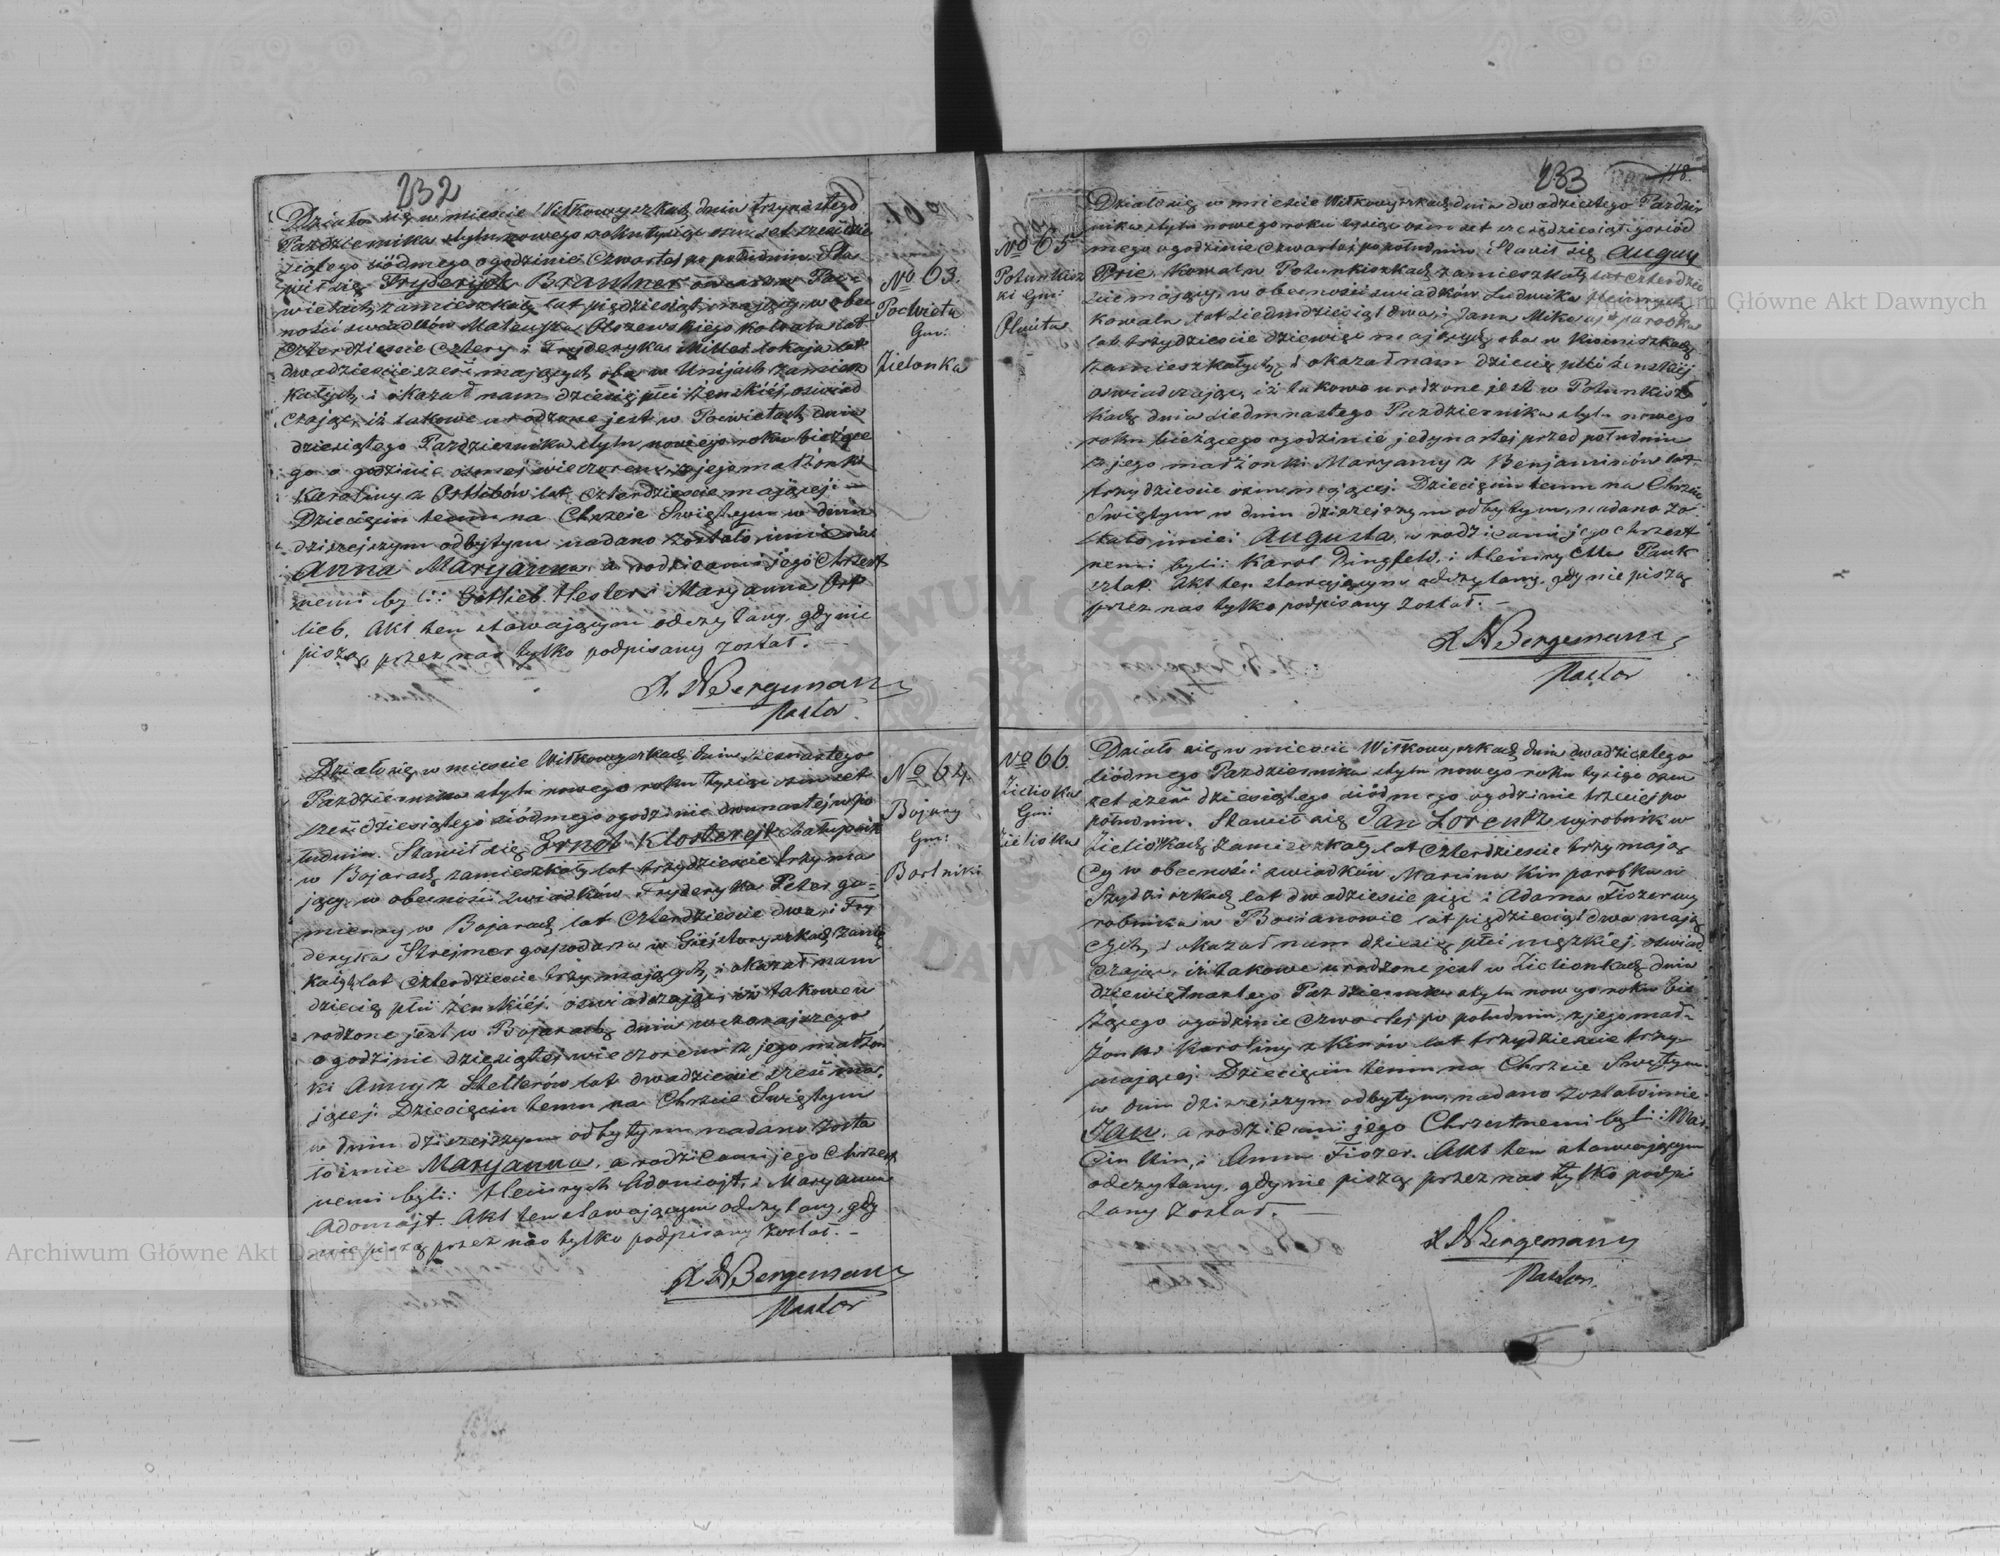 232
Działo się w mieście Wiłkowyszkach dnia trzynastego
Października stylu nowego roku tysiąc osiemset sześćdzie
siątego siódmego o godzinie czwartej po południu. Sta
wił się Fryderyk Brantner owczarz w Poe
wietach zamieszkały lat pięćdziesiąt mający, w obec
ności świadków Mateusza Olszewskiego kowala lat
czterdzieście cztery i Fryderyka Miller lokaja lat
dwadzieścia sześć mających oba w Unijach zamiesz
kałych i okazał nam dziecię płci żeńskiej, oświad
czając, iż takowe urodzone jest w Poewietach dnia
dziesiątego Października stylu nowego roku bieżące
go o godzinie ósmej wieczorem, z jego małżonki
Karoliny z Ortlibów lat czterdzieście mającej.
Dziecięciu temu na Chrzcie Świętym w dniu
dzisiejszym odbytym nadano zostało imiona
Anna Maryanna, a rodzicami jego Chrzest
nemi byli: Gotlieb Hesler i Maryanna Ort
lieb. Akt ten stawającym odczytany, gdy nie
piszą, przez nas tylko podpisany został. —
Bergemann
Pastor.
No 63.
Poewieta
Gm:
Zielonka
Działo się w mieście Wiłkowyszkach dnia szesnastego
Października stylu nowego roku tysiąc osiemset
sześćdziesiątego siódmego o godzinie dwunastej w po
łudniu. Stawił się Ernst Klosterejt chałupnik
w Bojarach zamieszkały lat trzydzieście trzy ma
jący, w obecności świadków Fryderyka Peter ga=
mierzy w Bojarach lat czterdzieście dwa, i Fry
deryka Strejmer gospodarza w Giejstoryszkach zamie
kałych lat czterdzieście trzy mających, i okazał nam
dziecię płci żeńskiéj oświadczając, iż takowe u
rodzone jest w Bojarach dnia wczorajszego
o godzinie dziesiątej wieczorem z jego małżon
ki Anny z Stelterów lat dwadzieście sześć ma
jącej. Dziecięciu temu na Chrzcie Świętym
w dniu dzisiejszym odbytym nadano zosta
ło imie Maryanna, a rodzicami jego Chrzest
nemi byli: Heinrych Adomajt, i Maryanna
Adomajt. Akt ten stawającym odczytany, gdy
nie piszą przez nas tylko podpisany został. —
Bergemann
Pastor
No 64.
Bojary
Gmi:
Bartniki
233
118.
No 65
Połunkisz
ki Gmi
Pluita
Działo się w mieście Wiłkowyszkach dnia dwudziestego Paździer
nika stylu nowego roku tysiąc osiem set sześćdziesiątego siód
mego o godzinie czwartej po południu. Stawił się August
Prie, kowal w Połunkiszkach zamieszkały lat czterdzie
ście mający, w obecności świadków Ludwika Heinrych
kowala lat siedmdziesiąt dwa, i Jana Mikeajt parobka
lat trzydzieście dziewięć mających, oba w Kisiniszkach
zamieszkałych, i okazał nam dziecię płci żenskiéj
oświadczając, iż takowe urodzone jest w Połunkisz
kach dnia siedmnastego Października stylu nowego
roku bieżącego o godzinie jedynastej przed południem
z jego małżonki Maryanny z Benjaminów lat
trzydzieście osiem mającej. Dziecięciu temu na Chrzcie
Świętym w dniu dzisiejszym odbytym, nadano zo
stało imie: Augusta, a rodzicami jego chrzest
nemi byli: Karol Ringfeld, i Heinryetta Pauk
sztat. Akt ten stawającym odczytany, gdy nie piszą
przez nas tylko podpisany został. —
Bergemann
Pastor
No 66.
Zielioka
Gm:
Zielioka
Działo się w mieście Wiłkowyszkach dnia dwudziestego
siódmego Października stylu nowego roku tysiąc osiem
set sześćdziesiątego siódmego o godzinie trzeciej po
południu. Stawił się Jan Lorentz wyrobnik w
Zieliońkach zamieszkały lat czterdzieście trzy mają
cy w obecności świadków Marcina Kin parobka w
Szydziszkach lat dwadzieście pięć i Adama Fiszer wy
robnika w Bocianowie lat pięćdziesiąt dwa mają
cych, i okazał nam dziecię płci męzkiej, oświad
czając, iż takowe urodzone jest w Zielionkach dnia
dziewiętnastego Października stylu nowego roku bie
żącego o godzinie czwartej po południu, z jego mał-
żonki Karoliny z Kinów lat trzydzieście trzy
mającej. Dziecięciu temu na Chrzcie Świętym
w dniu dzisiejszym odbytym, nadano zostało imie
Jan, a rodzicami jego Chrzestnemi byli: Mar
cin Kin, i Anna Fiszer. Akt ten stawającym
odczytany, gdy nie piszą przez nas tylko podpi
sany został. —
Bergemann
Pastor.
Archiwum Główne Akt Dawnych
Archiwum Główne Akt Dawnych